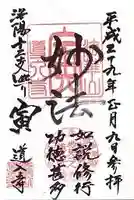 平成二十九年正月九日参拝
妙法
如説修行
功徳甚多
洛陽十二支めぐり
寅
道入寺